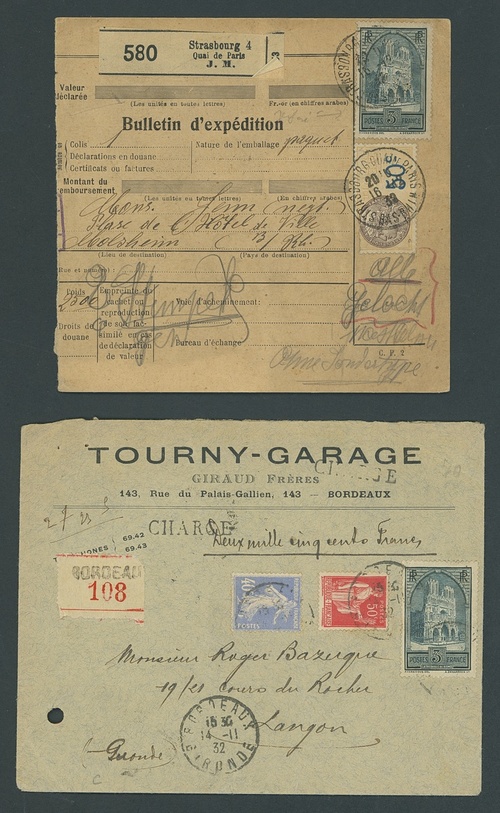 580
Strasbourg 4
Quai de Paris
J. M.
Valeur
déclarée
(Les unités en toutes lettres)
Fr.-or (en chiffres arabes)
Bulletin d'expédition
Colis
Nature de l'emballage paquet
Déclarations en douane
Certificats ou factures
Montant du
remboursement
(Les unités en toutes lettres)
(En chiffres arabes)
Mons.
Place de l'Hôtel de Ville
Molsheim
(Lieu de destination)
(Pays de destination)
Rue et numéro:
Poids
Empreinte du
cachet ou
reproduction
de son fac-
similé en cas
de déclaration
de valeur
Voie d'acheminement:
Droits de
douane
Bureau d'échange
C. P. 2
POSTES 3F FRANCE
20
16
32
TOURNY-GARAGE
GIRAUD FRÈRES
143, Rue du Palais-Gallien, 143 — BORDEAUX
CHARGE
CHARGE
69.42
69.43
Deux mille cinq cents Francs
BORDEAUX
108
40c
POSTES
50c
POSTES 3F FRANCE
Monsieur Roger Bazergue
19/21 cours du Rocher
Langon
Gironde
BORDEAUX
15 30
14 -11
32
GIRONDE